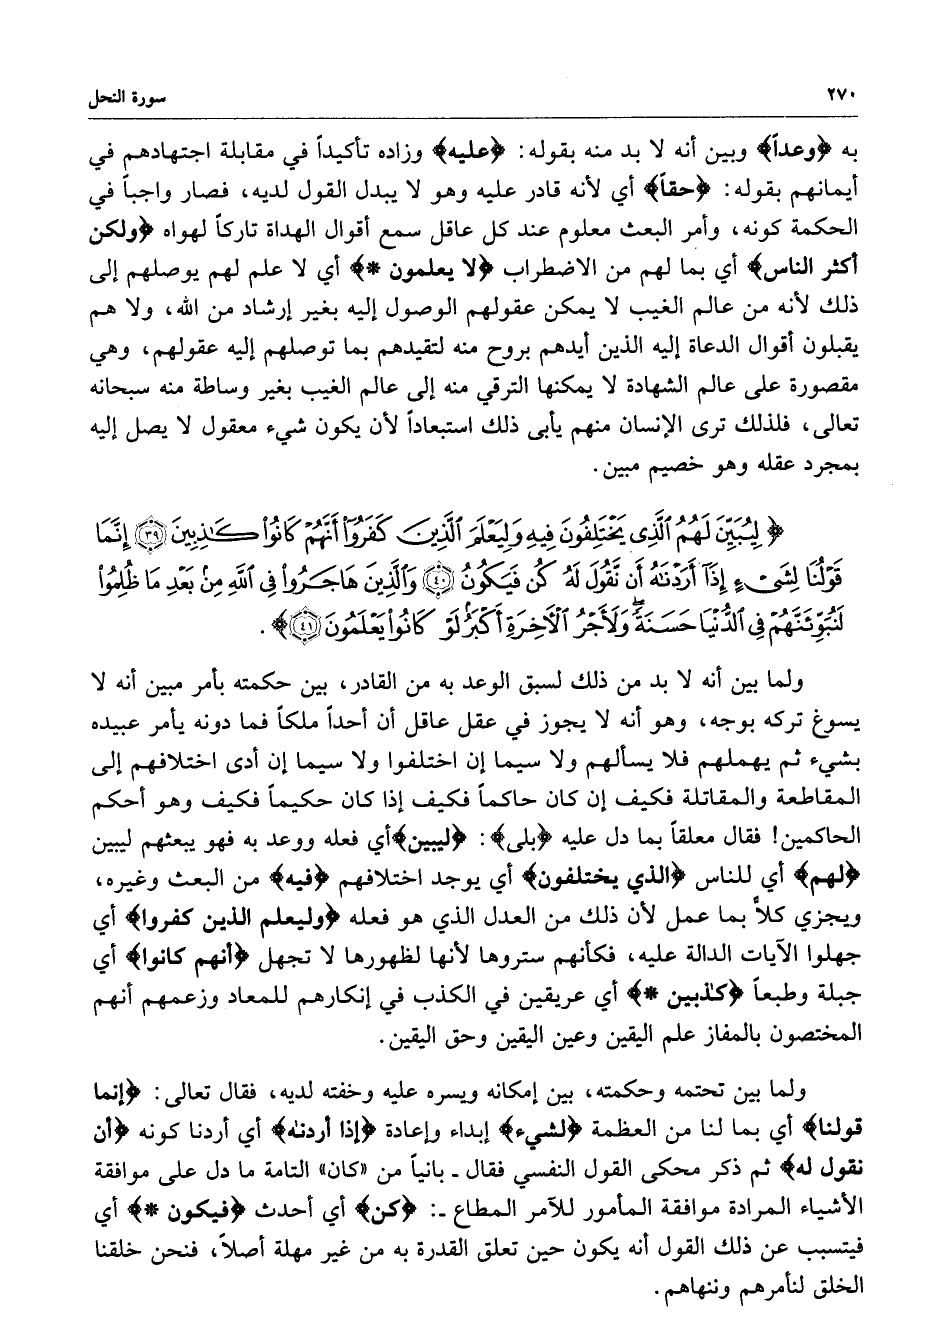 ٢٧٠ سورة النحل
به ﴿وعداً﴾ وبين أنه لا بد منه بقوله: ﴿عليه﴾ وزاده تأكيداً في مقابلة اجتهادهم في
أيمانهم بقوله: ﴿حقاً﴾ أي لأنه قادر عليه وهو لا يبدل القول لديه، فصار واجباً في
الحكمة كونه، وأمر البعث معلوم عند كل عاقل سمع أقوال الهداة تاركاً لهواه ﴿ولكن
أكثر الناس﴾ أي بما لهم من الاضطراب ﴿لا يعلمون *﴾ أي لا علم لهم يوصلهم إلى
ذلك لأنه من عالم الغيب لا يمكن عقولهم الوصول إليه بغير إرشاد من الله، ولا هم
يقبلون أقوال الدعاة إليه الذين أيدهم بروح منه لتقيدهم بما توصلهم إليه عقولهم، وهي
مقصورة على عالم الشهادة لا يمكنها الترقي منه إلى عالم الغيب بغير وساطة منه سبحانه
تعالى، فلذلك ترى الإنسان منهم يأبى ذلك استبعاداً لأن يكون شيء معقول لا يصل إليه
بمجرد عقله وهو خصيم مبين.
﴿ لِيُبَيِّنَ لَهُمُ ٱلَّذِى يَخْتَلِفُونَ فِيهِ وَلِيَعْلَمَ ٱلَّذِينَ كَفَرُوٓا۟ أَنَّهُمْ كَانُوا۟ كَـٰذِبِينَ ٣٩ إِنَّمَا
قَوْلُنَا لِشَىْءٍ إِذَآ أَرَدْنَـٰهُ أَن نَّقُولَ لَهُۥ كُن فَيَكُونُ ٤٠ وَٱلَّذِينَ هَاجَرُوا۟ فِى ٱللَّهِ مِنۢ بَعْدِ مَا ظُلِمُوا۟
لَنُبَوِّئَنَّهُمْ فِى ٱلدُّنْيَا حَسَنَةً ۖ وَلَأَجْرُ ٱلْـَٔاخِرَةِ أَكْبَرُ لَوْ كَانُوا۟ يَعْلَمُونَ ٤١﴾ .
ولما بين أنه لا بد من ذلك لسبق الوعد به من القادر، بين حكمته بأمر مبين أنه لا
يسوغ تركه بوجه، وهو أنه لا يجوز في عقل عاقل أن أحداً ملكاً فما دونه يأمر عبيده
بشيء ثم يهملهم فلا يسألهم ولا سيما إن اختلفوا ولا سيما إن أدى اختلافهم إلى
المقاطعة والمقاتلة فكيف إن كان حاكماً فكيف إذا كان حكيماً فكيف وهو أحكم
الحاكمين! فقال معلقاً بما دل عليه ﴿بلى﴾: ﴿ليبين﴾أي فعله ووعد به فهو يبعثهم ليبين
﴿لهم﴾ أي للناس ﴿الذي يختلفون﴾ أي يوجد اختلافهم ﴿فيه﴾ من البعث وغيره،
ويجزي كلاً بما عمل لأن ذلك من العدل الذي هو فعله ﴿وليعلم الذين كفروا﴾ أي
جهلوا الآيات الدالة عليه، فكأنهم ستروها لأنها لظهورها لا تجهل ﴿أنهم كانوا﴾ أي
جبلة وطبعاً ﴿كذبين *﴾ أي عريقين في الكذب في إنكارهم للمعاد وزعمهم أنهم
المختصون بالمفاز علم اليقين وعين اليقين وحق اليقين.
ولما بين تحتمه وحكمته، بين إمكانه ويسره عليه وخفته لديه، فقال تعالى: ﴿إنما
قولنا﴾ أي بما لنا من العظمة ﴿لشيء﴾ إبداء وإعادة ﴿إذا أردنٰه﴾ أي أردنا كونه ﴿أن
نقول له﴾ ثم ذكر محكى القول النفسي فقال ـ بانياً من «كان» التامة ما دل على موافقة
الأشياء المرادة موافقة المأمور للآمر المطاع ـ: ﴿كن﴾ أي أحدث ﴿فيكون *﴾ أي
فيتسبب عن ذلك القول أنه يكون حين تعلق القدرة به من غير مهلة أصلاً، فنحن خلقنا
الخلق لنأمرهم وننهاهم.